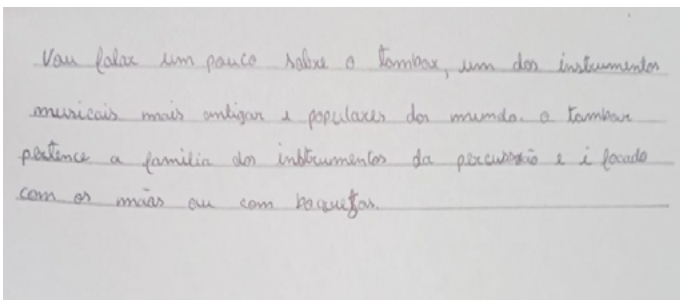 Vou falar um pouco sobre o tambor, um dos instrumentos
musicais mais antigos e populares dos mundo. o tambor
pertence a familia dos instrumentos da percussão e é tocado
com as mãos ou com baquetas.